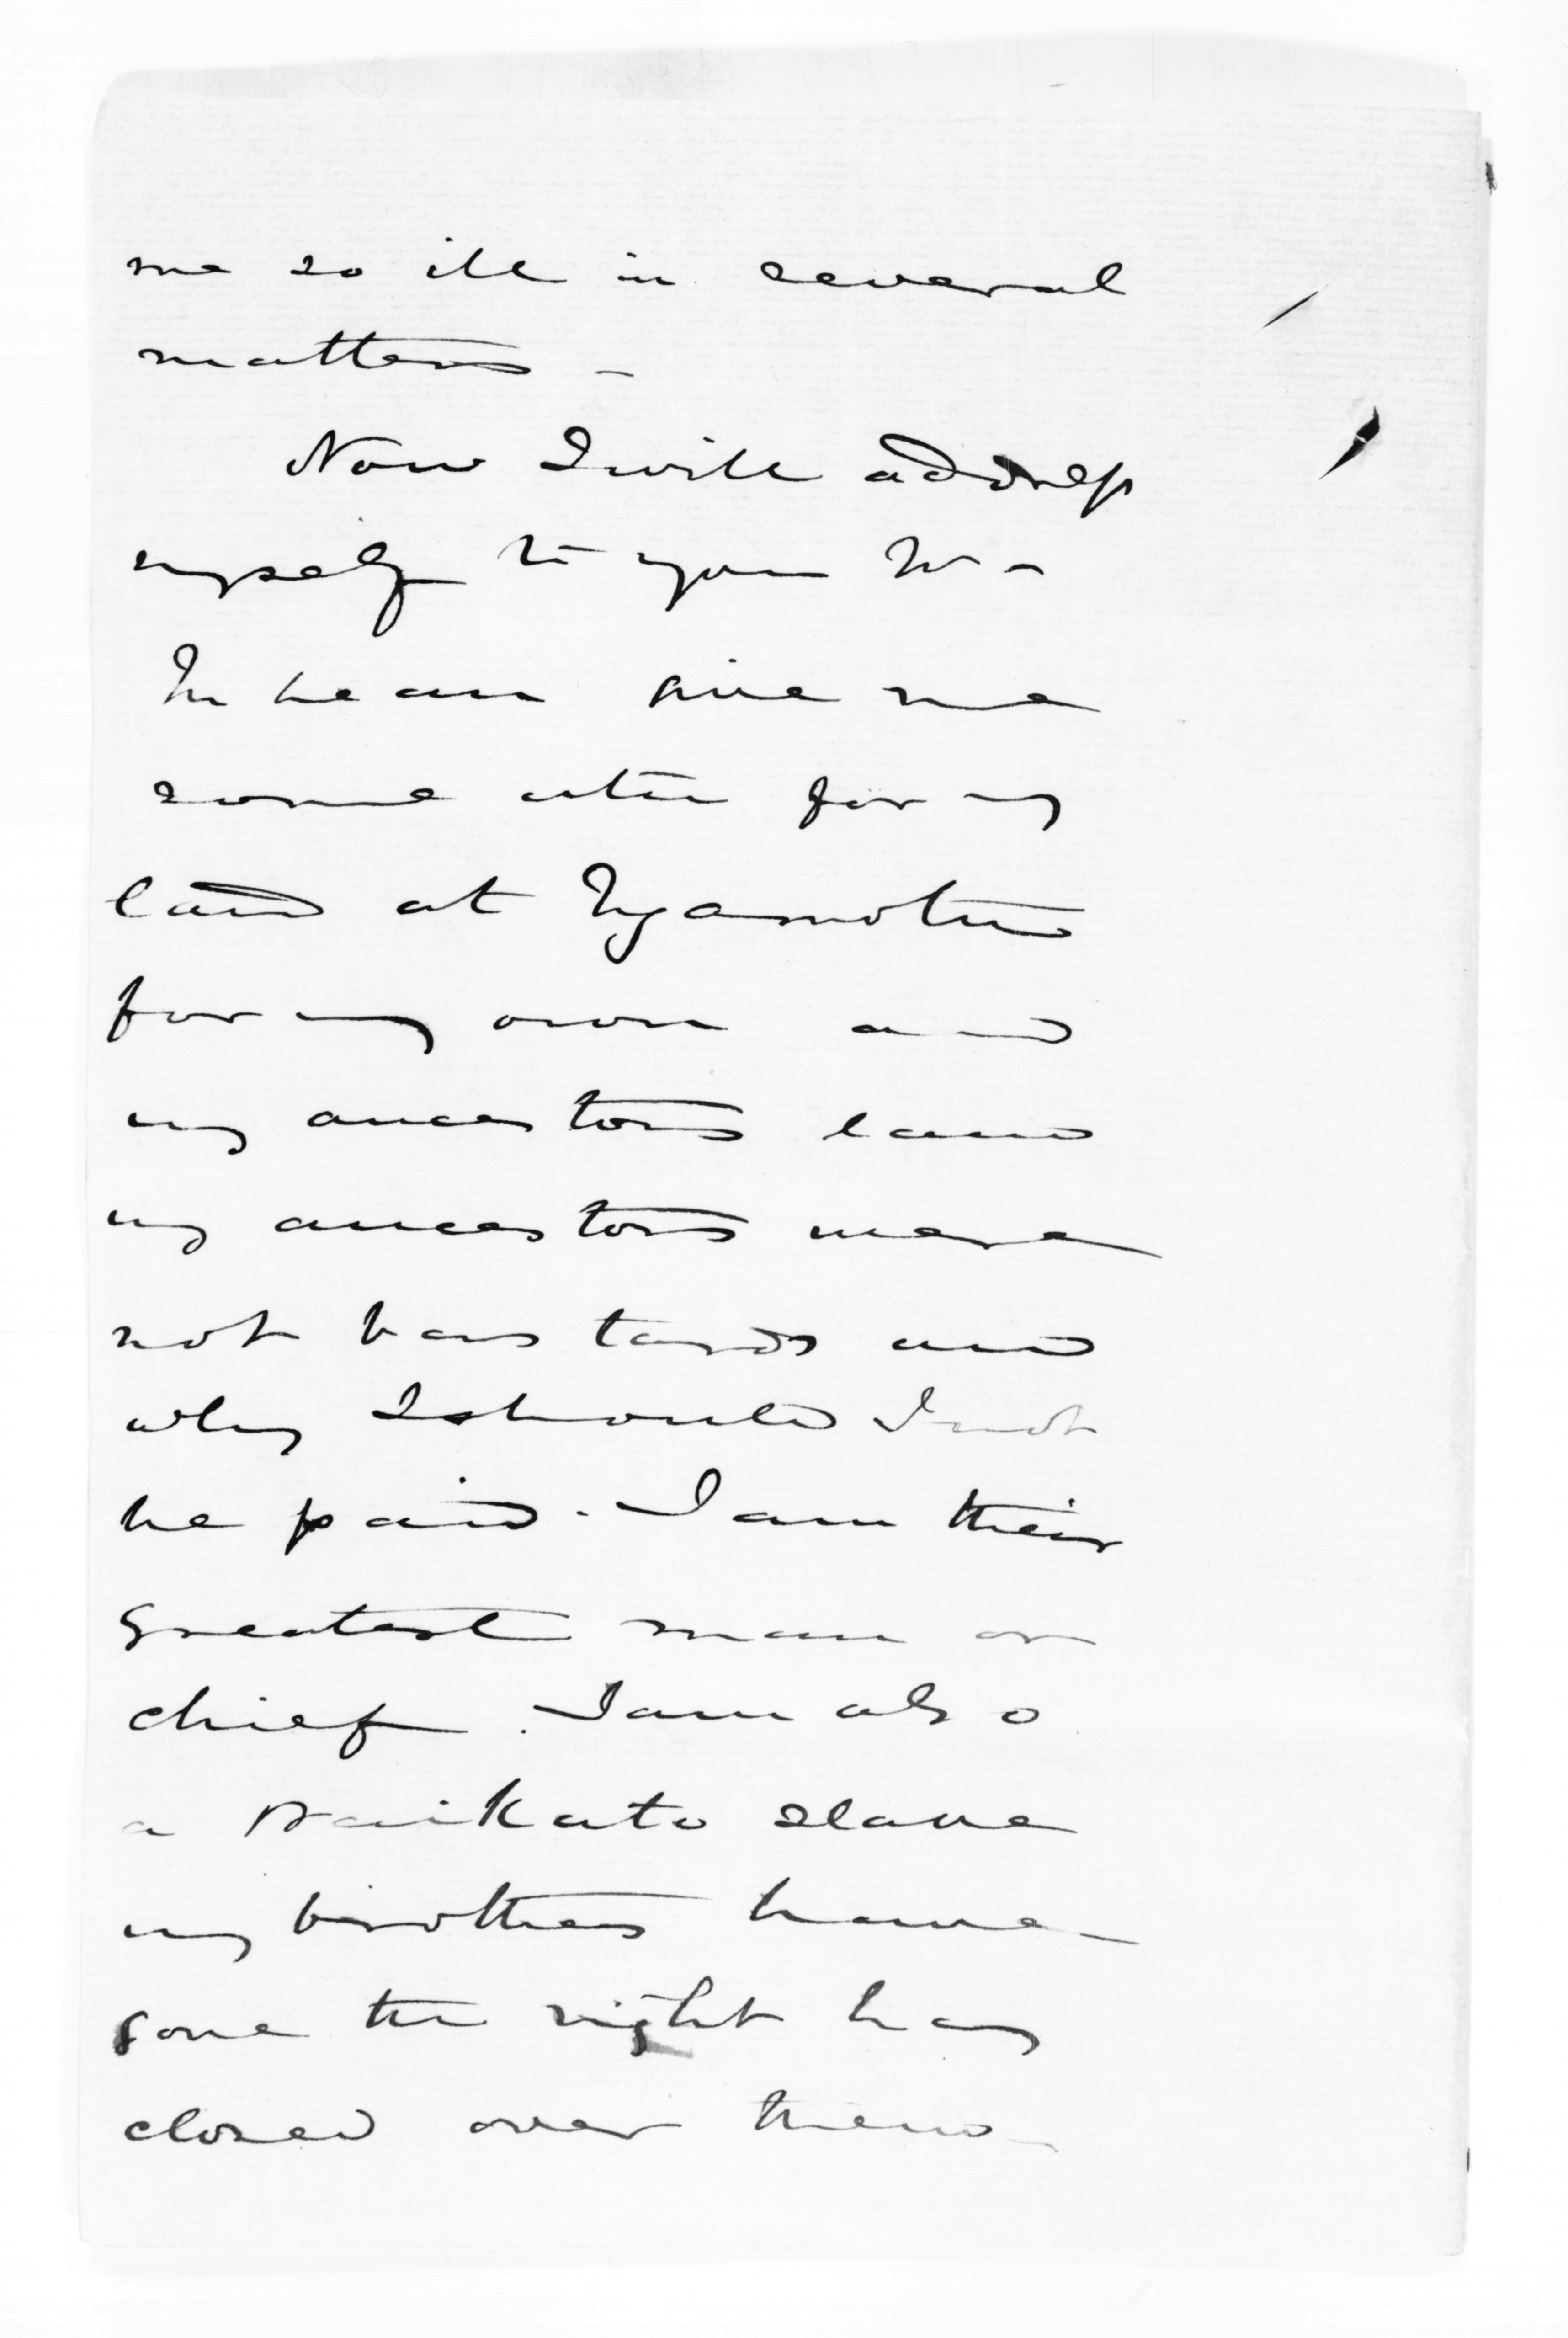 me so ill in several
matters -
Now I will address
myself to you Mr -
McLean give me
some utu for my
land at Ngamotu
for my own and
my ancestors land
my ancestors were
not bastards and
why I should I not
be paid. I am their
greatest man or
chief. I am also
a Waikato slave
my brothers have
gone the night has
closed over them -